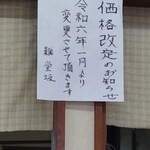 価格改定のお知らせ
令和六年一月より
変更させて頂きます